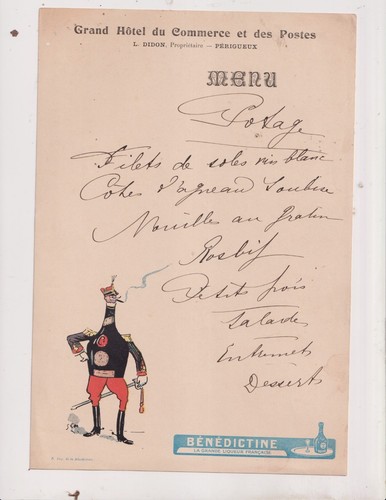 Grand Hôtel du Commerce et des Postes
L. DIDON, Propriétaire — PÉRIGUEUX
MENU
Potage
Filets de soles vin blanc
Côtes d'agneau Soubise
Nouilles au gratin
Rosbif
Petits pois
Salade
Entremets
Desserts
BÉNÉDICTINE
LA GRANDE LIQUEUR FRANÇAISE